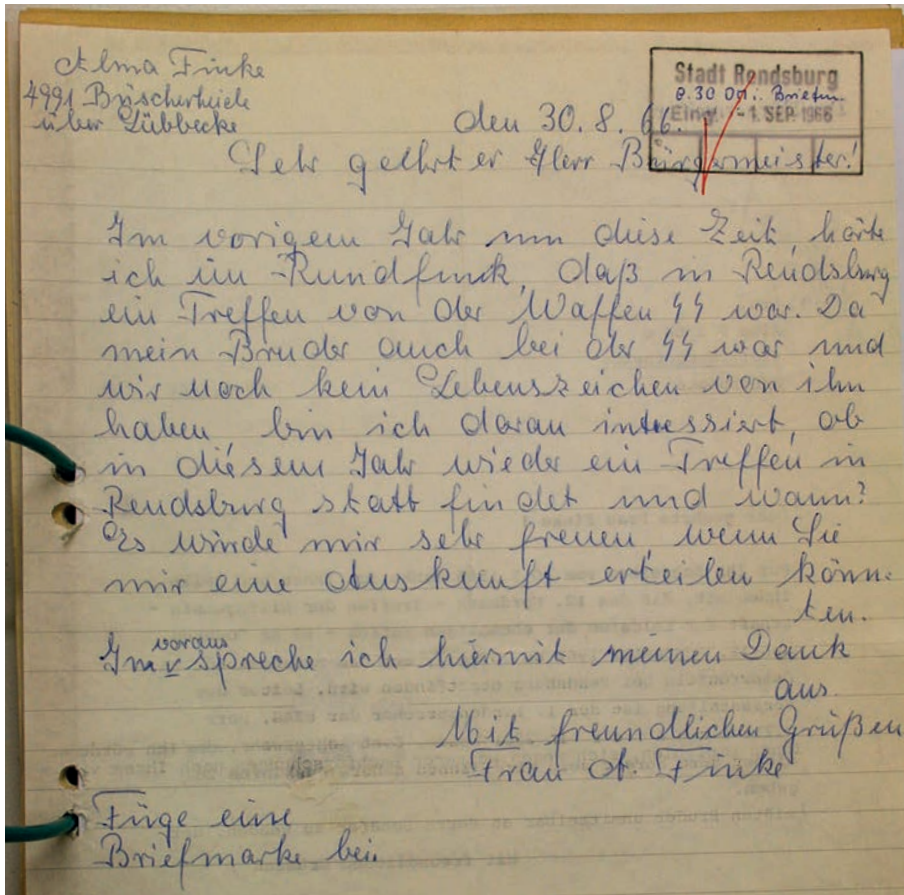 Alma Finke
4991 Büscherheide
über Lübbecke
Stadt Rendsburg
Eing. - 1. SEP. 1966
den 30. 8. 66.
Sehr geehrter Herr Bürgermeister!
Im vorigem Jahr um diese Zeit, hörte
ich im Rundfunk, daß in Rendsburg
ein Treffen von der Waffen SS war. Da
mein Bruder auch bei der SS war und
wir noch kein Lebenszeichen von ihm
haben, bin ich daran intressiert, ob
in diesem Jahr wieder ein Treffen in
Rendsburg statt findet und wann?
Es würde mir sehr freuen, wenn Sie
mir eine Auskunft erteilen könn-
ten.
Im voraus spreche ich hiermit meinen Dank
aus.
Mit freundlichen Grüßen
Frau A. Finke
Füge eine
Briefmarke bei.